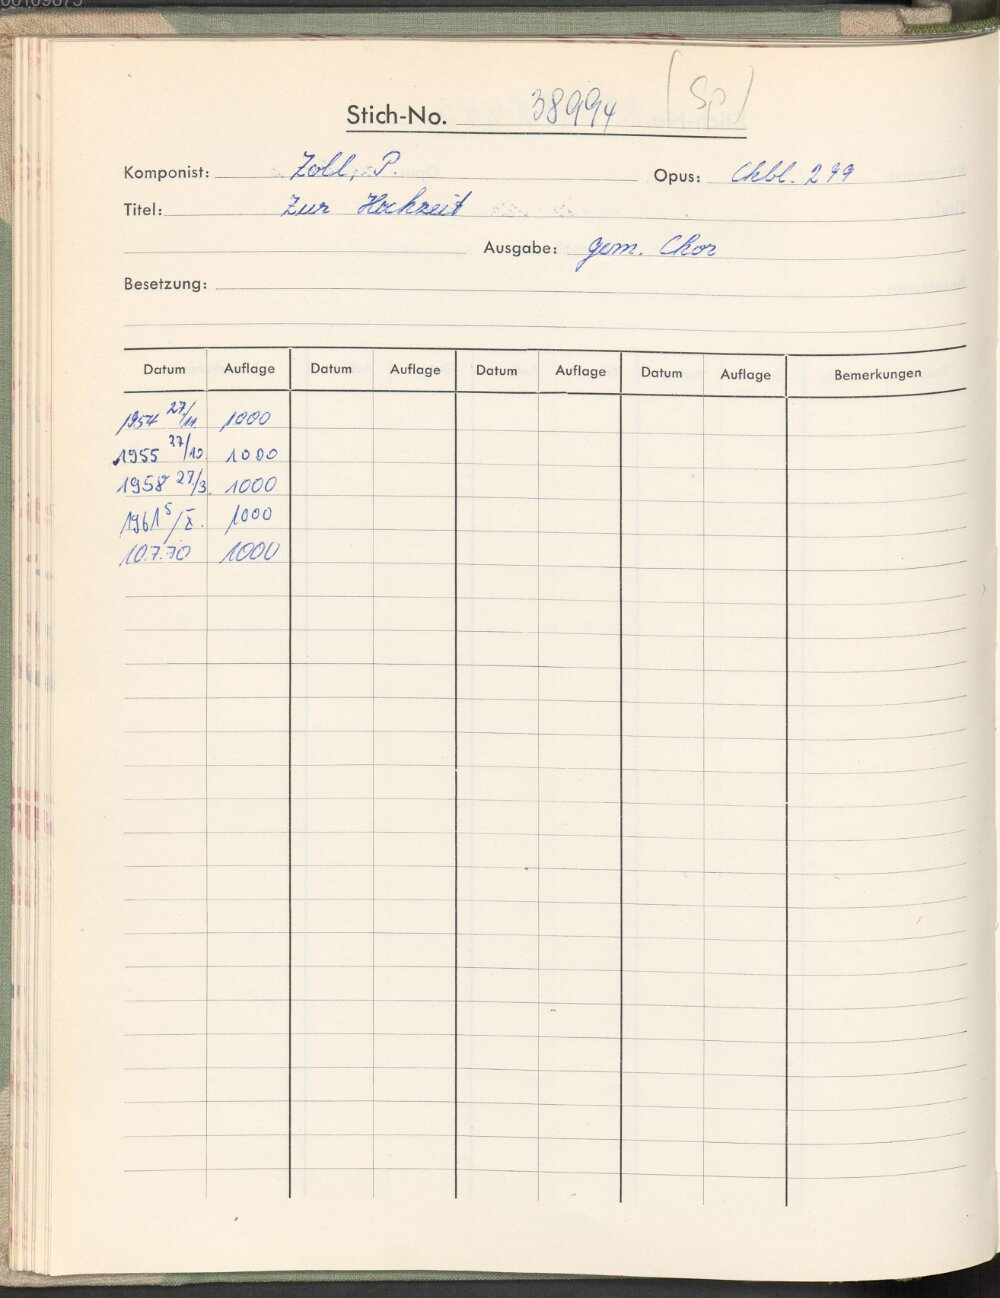 Stich-No. 38994 (Sp)
Komponist: Zoll, P. Opus: Chbl. 299
Titel: Zur Hochzeit
Ausgabe: gem. Chor
Besetzung:
Datum Auflage Datum Auflage Datum Auflage Datum Auflage Bemerkungen
1954 27/11. 1000
1955 27/10. 1000
1958 27/3. 1000
1961 5/X. 1000
10.7.70 1000